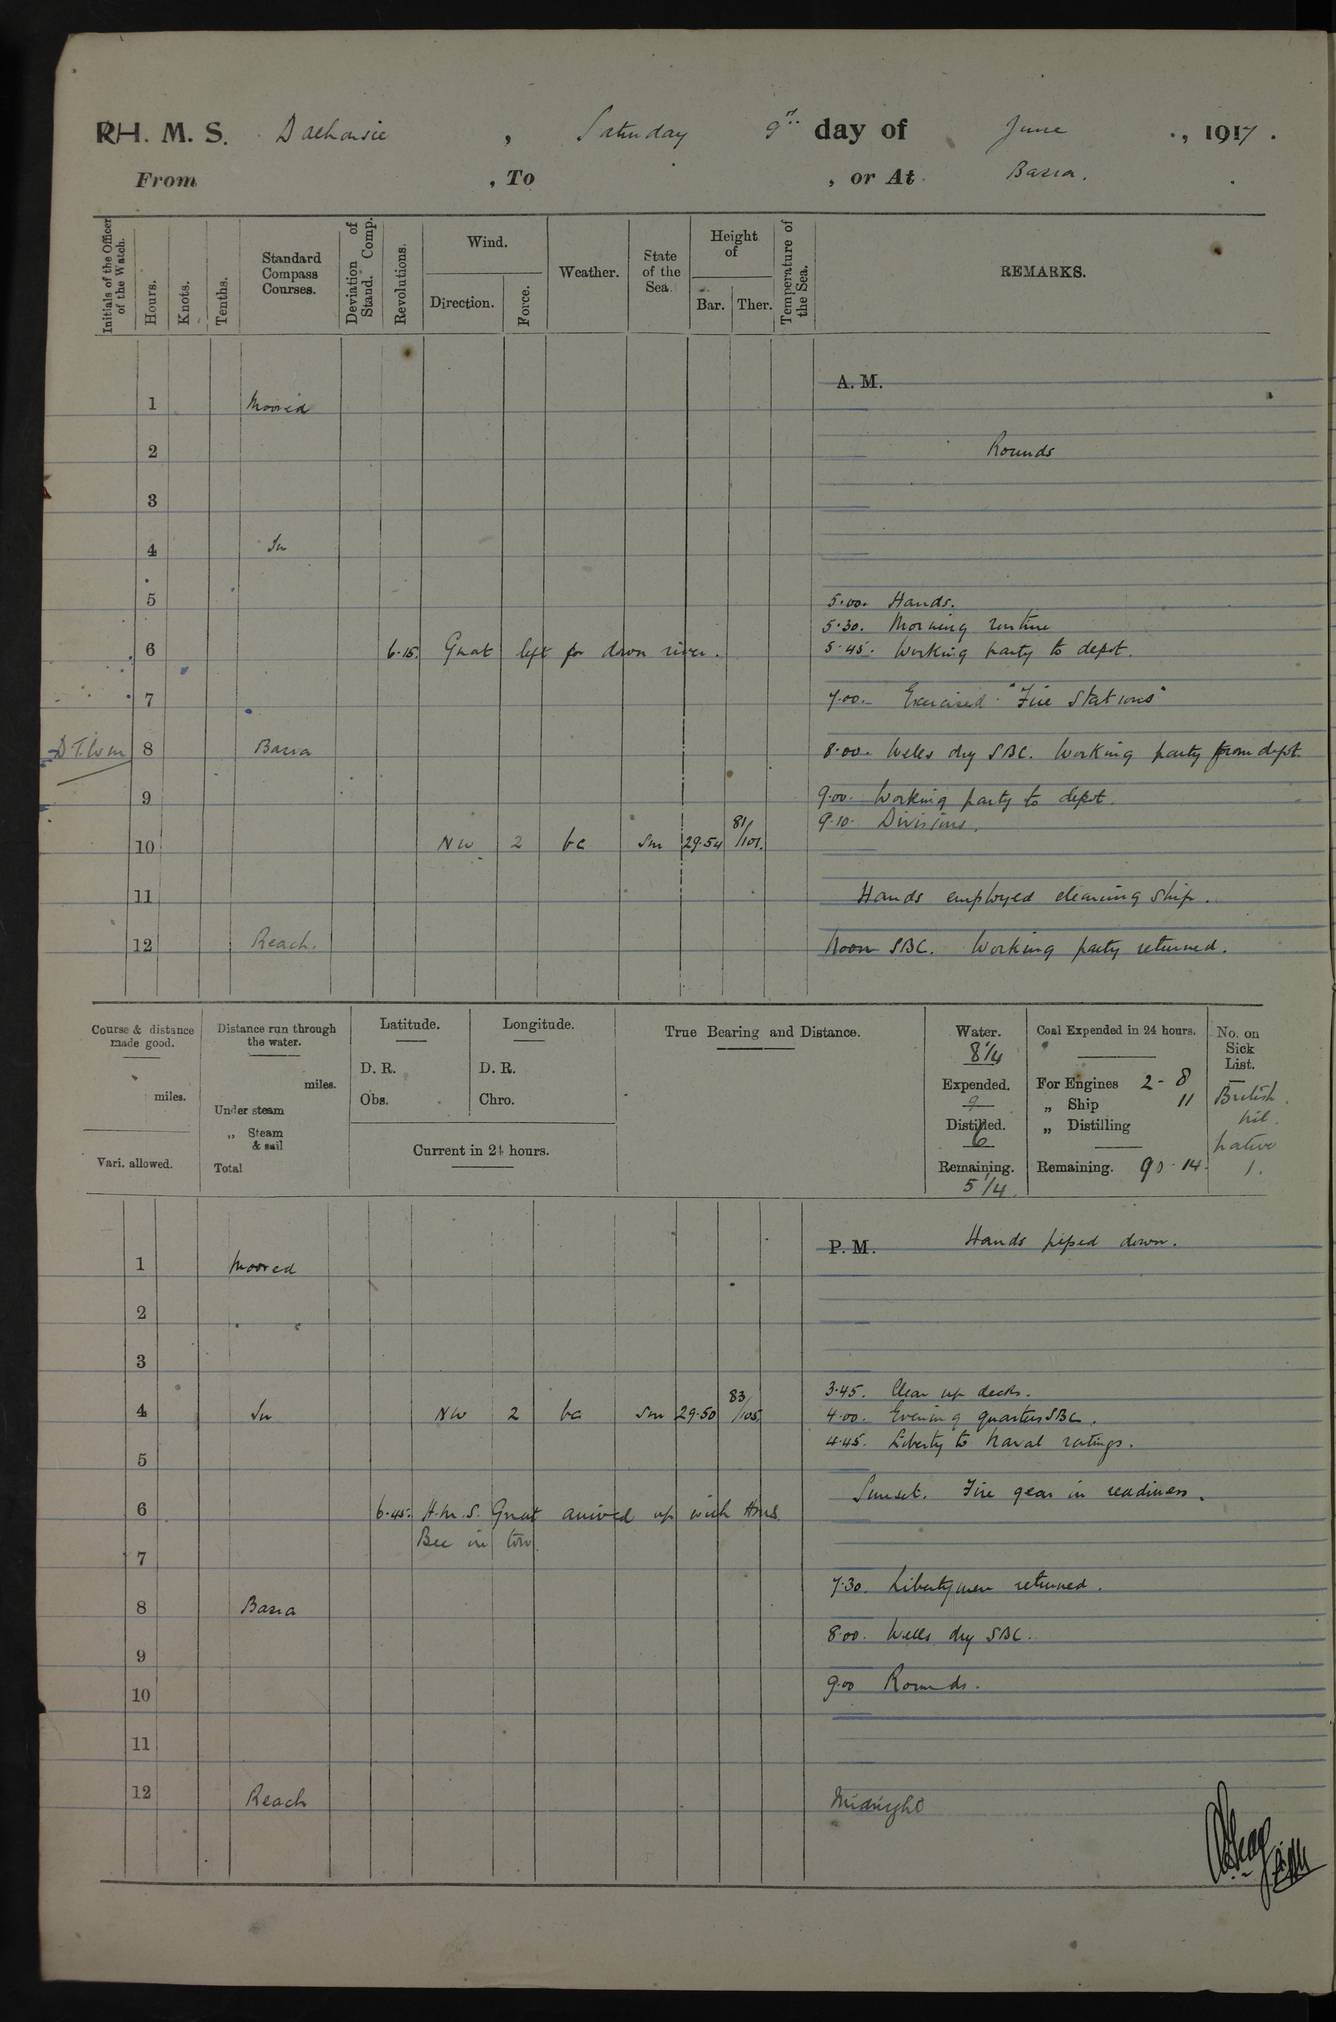 RH. M. S. Dalhousie, Saturday 9th day of June, 1917.
From , To , or At Basra.
Initials of the Officer of the Watch.
Hours.
Knots.
Tenths.
Standard Compass Courses.
Deviation of Stand. Comp.
Revolutions.
Wind.
Direction.
Force.
Weather.
State of the Sea.
Height of
Bar.
Ther.
Temperature of the Sea.
REMARKS.
A. M.
1 Moored
2 Rounds
3
4 In
5 5.00. Hands.
5.30. Morning routine
6 6.15. Gnat left for down river. 5.45. Working party to depot.
7 7.00. Exercised "Fire Stations"
8 Basra 8.00. Wells dry SBC. Working party from depot.
9 9.00. Working party to depot.
9.10. Divisions.
10 NW 2 bc Sm 29.54 81/101.
11 Hands employed cleaning ship.
12 Reach. Noon SBC. Working party returned.
Course & distance made good.
miles.
Vari. allowed.
Distance run through the water.
miles.
Under steam
„ Steam & sail
Total
Latitude.
D. R.
Obs.
Longitude.
D. R.
Chro.
Current in 24 hours.
True Bearing and Distance.
Water.
8 1/4
Expended.
9
Distilled.
6
Remaining.
5 1/4
Coal Expended in 24 hours.
For Engines 2 - 8
„ Ship 11
„ Distilling
Remaining. 90 - 14.
No. on Sick List.
British
nil.
native
1.
P. M. Hands piped down.
1 Moored
2
3
3.45. Clear up decks.
4 In NW 2 bc Sm 29.50 83/105 4.00. Evening quarters SBC.
4.45. Liberty to Naval ratings.
5
Sunset. Fire gear in readiness.
6 6.45. H.M.S. Gnat arrived up with HMS
Bee in tow.
7
7.30. Liberty men returned.
8 Basra
8.00. Wells dry SBC.
9
9.00 Rounds.
10
11
12 Reach Midnight